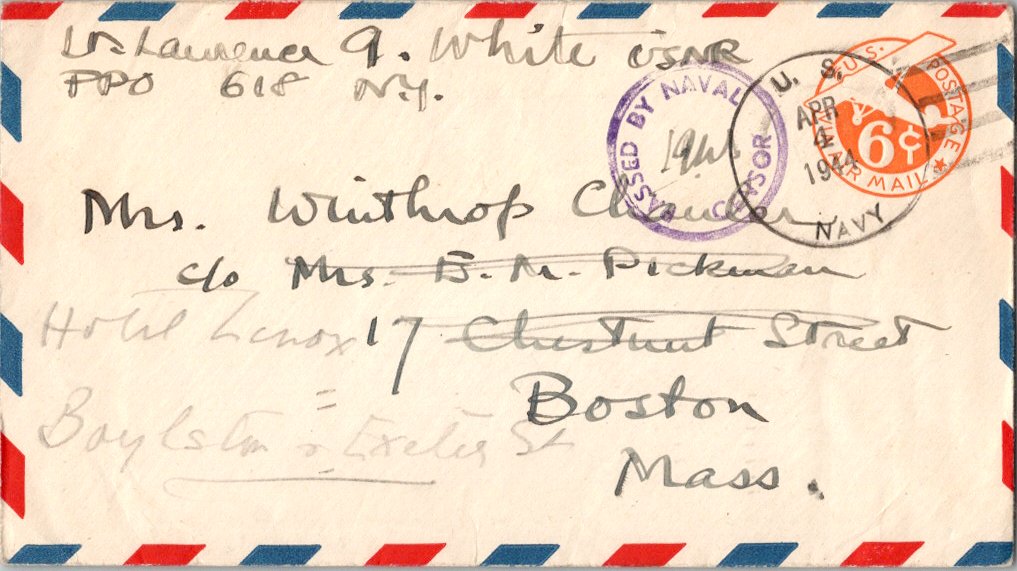 Lt. Lawrence G. White USNR
FPO 618 N.Y.
PASSED BY NAVAL CENSOR
U. S. NAVY
APR
4
1944
U.S. POSTAGE
6¢
AIR MAIL
Mrs. Winthrop Chanler
c/o Mrs. E. M. Pickman
17 Chestnut Street
Boston
Mass.
Hotel Lenox
Boylston & Exeter St